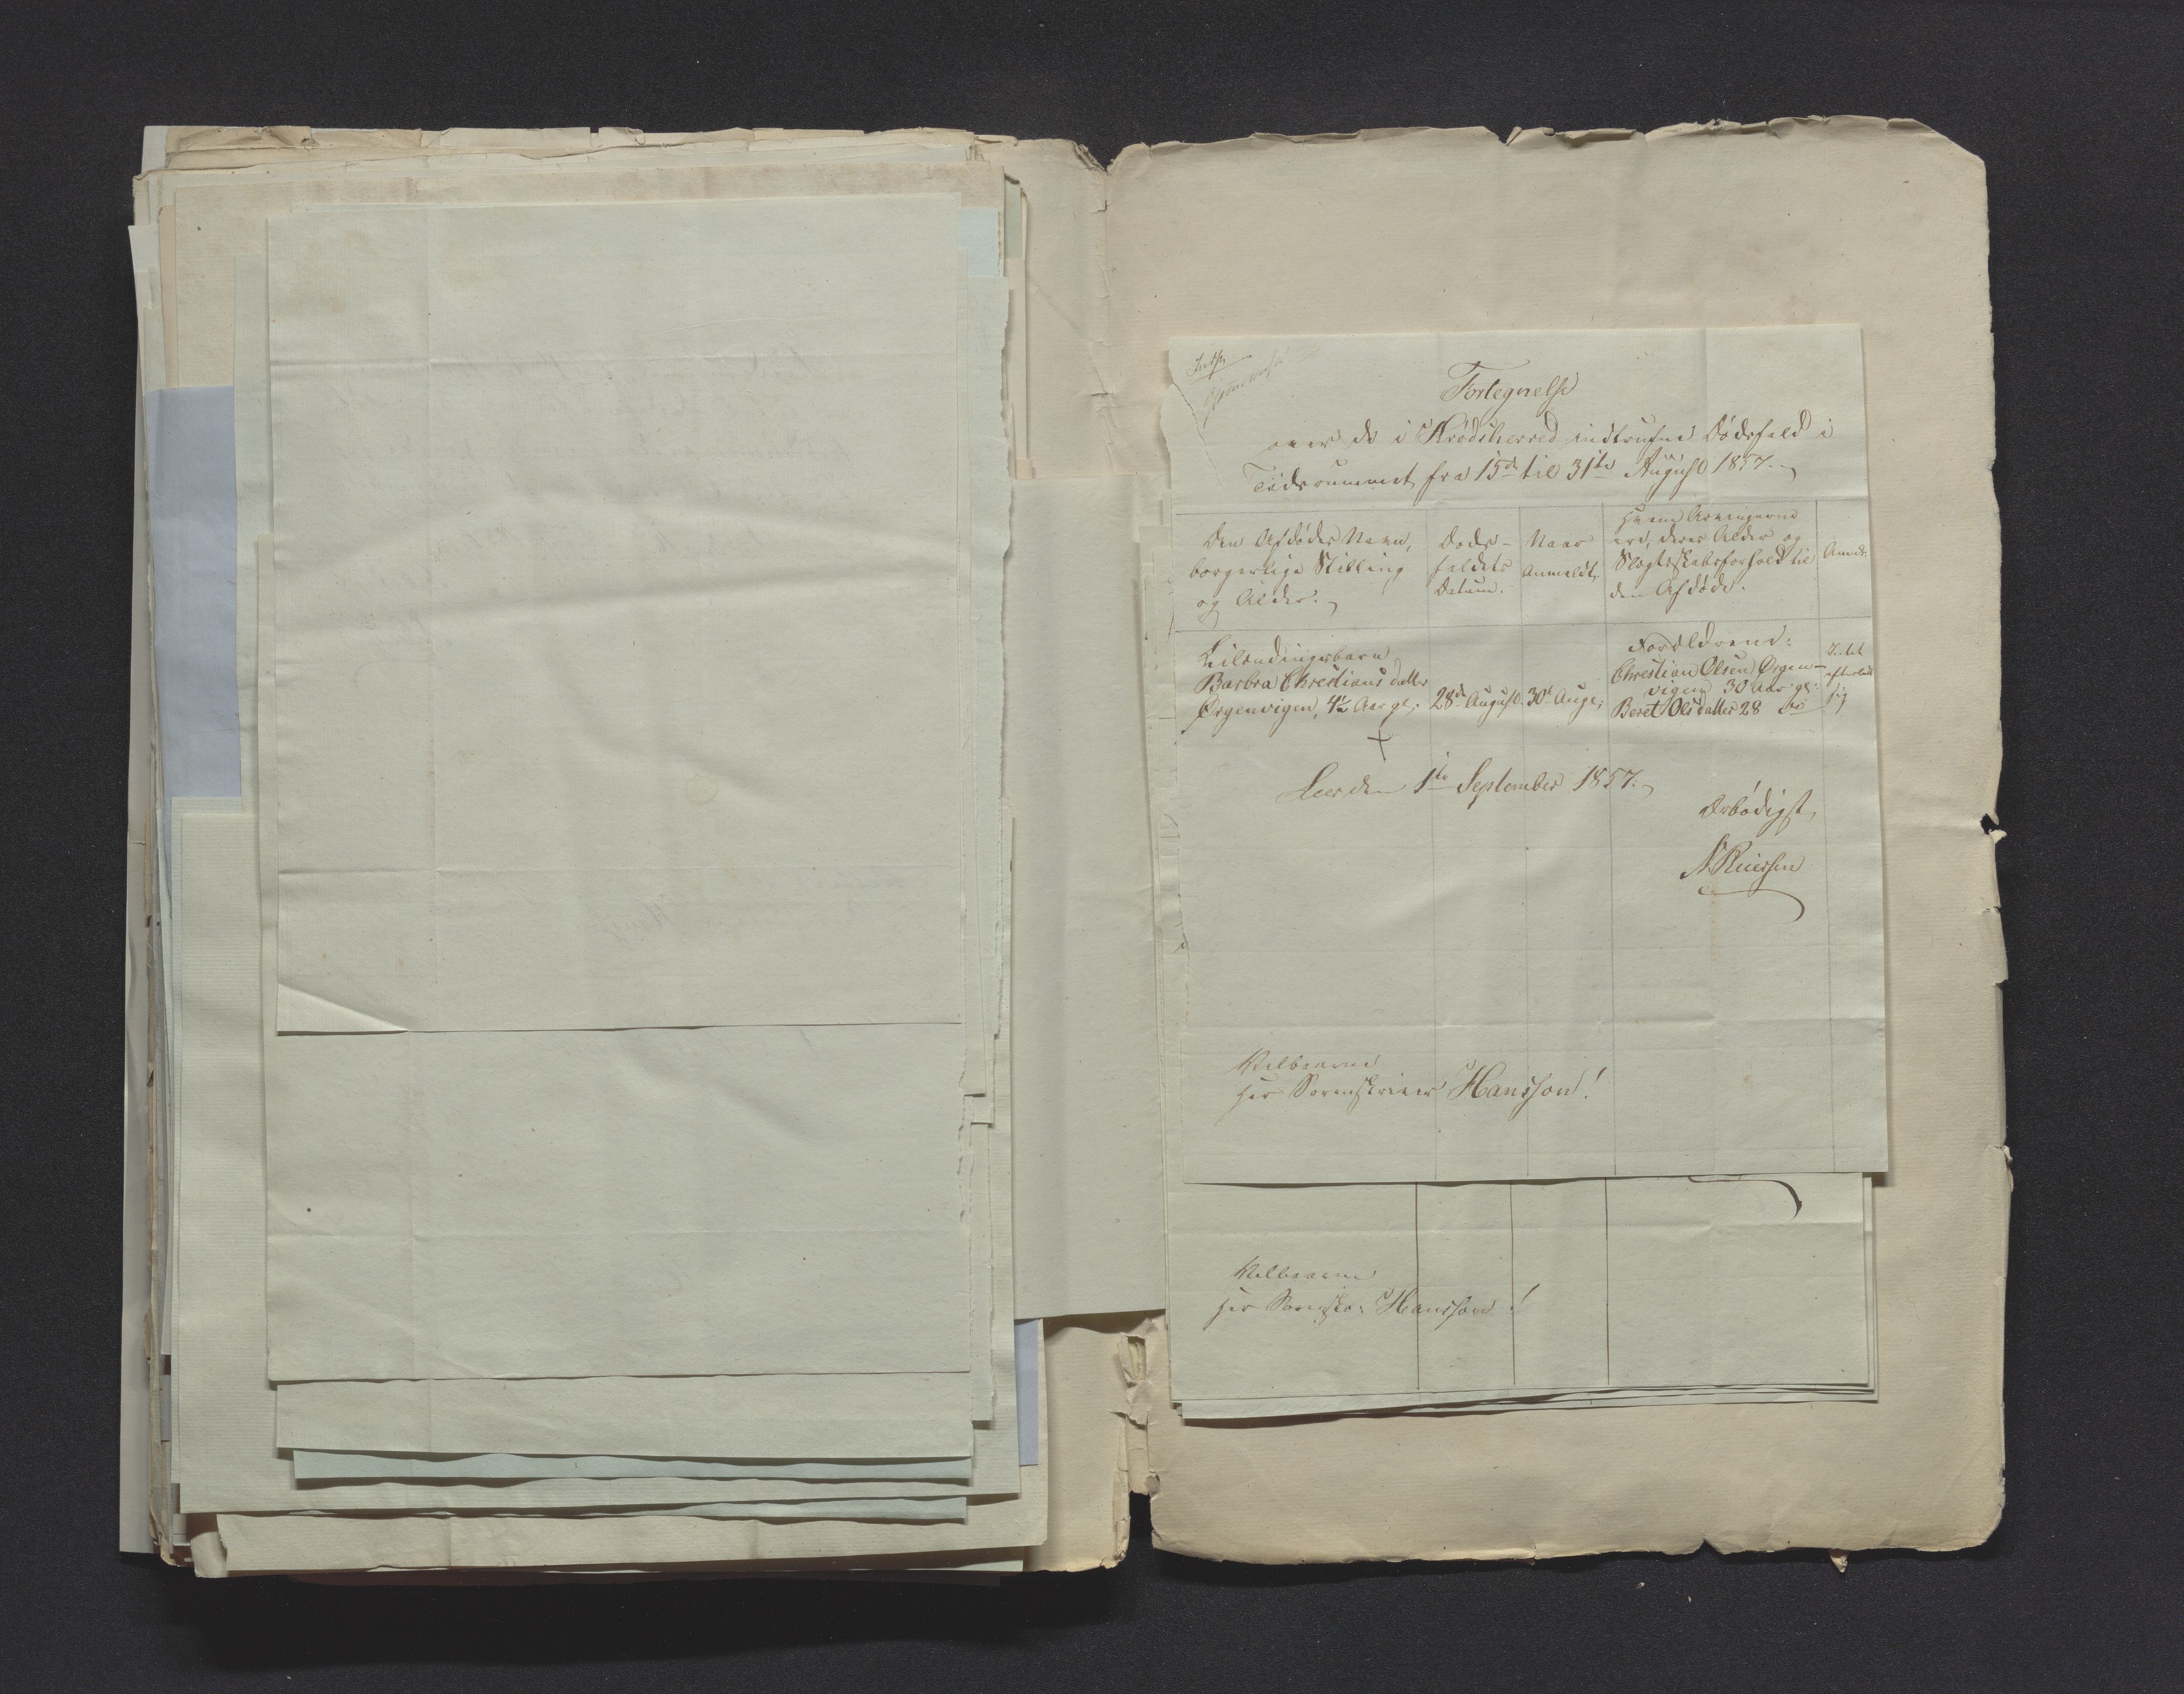 Fortegnelse
over de i Krødsherred indtrufne Dødsfald i
Tidsrummet fra 15de til 31te August 1857.
Den Afdødes Navn,
borgerlige Stilling
og Alder.
Døds-
faldets
Datum.
Naar
Anmeldt.
Hvem Arvingerne
ere, deres Alder og
Slægtskabsforhold til
den Afdøde.
Anmk:
Leilændingsbarn
Barbra Christiansdatter
Ørgenvigen, 4½ Aar gl.
28de August.
30te Aug.
Forældrene:
Christian Olsen Ørgen-
vigen 30 Aar gl:
Beret Olsdatter 28 do
Intet
efterladt
sig
Leer den 1te September 1857.
Ærbødigst,
Velbaarne
Herr Sorenskriver Hansson!
Velbaarne
Herr Sorenskr: Hansson!